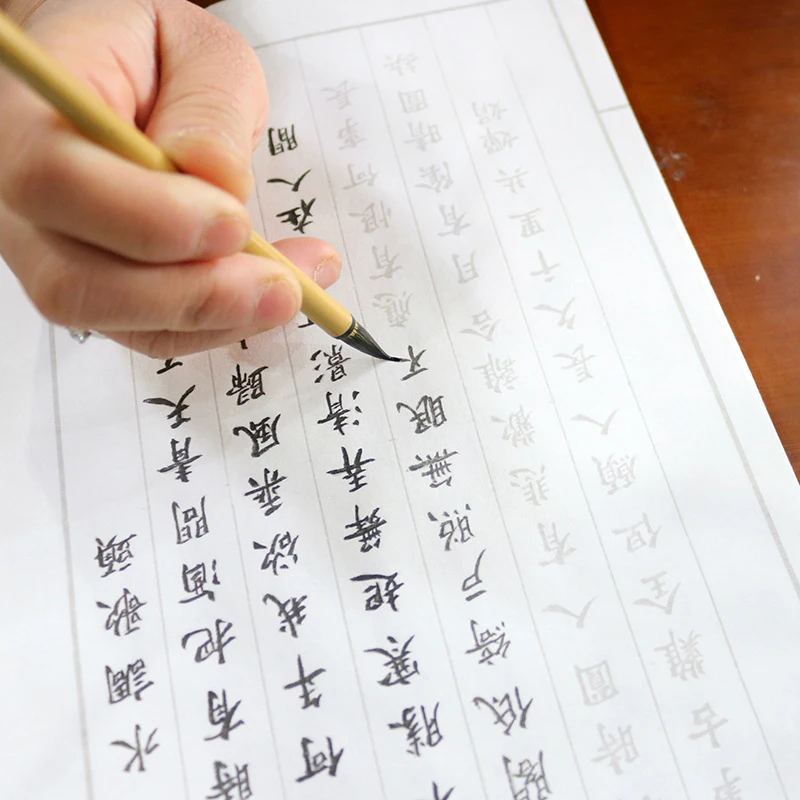 水調歌頭
時有把酒問青天不
何年我欲乘風歸
不勝寒起舞弄清影在人間
閣低綺戶照無眠不應有恨何事長
時圓人有悲歡離合月有陰晴圓缺
事古難全但願人長久千里共嬋娟